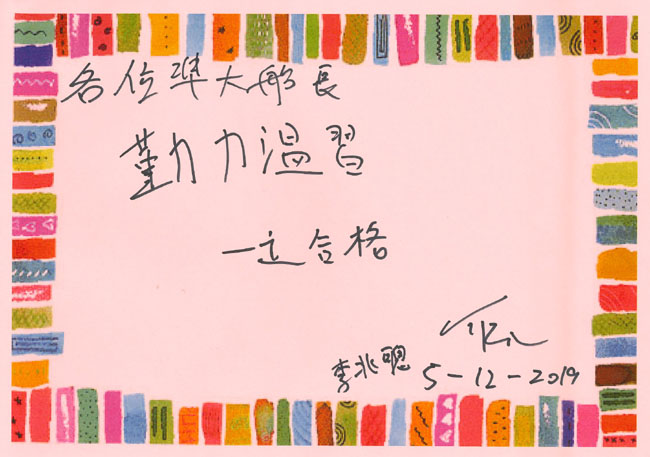 各位準大船長
勤力溫習
一定合格
李兆聰 5-12-2019